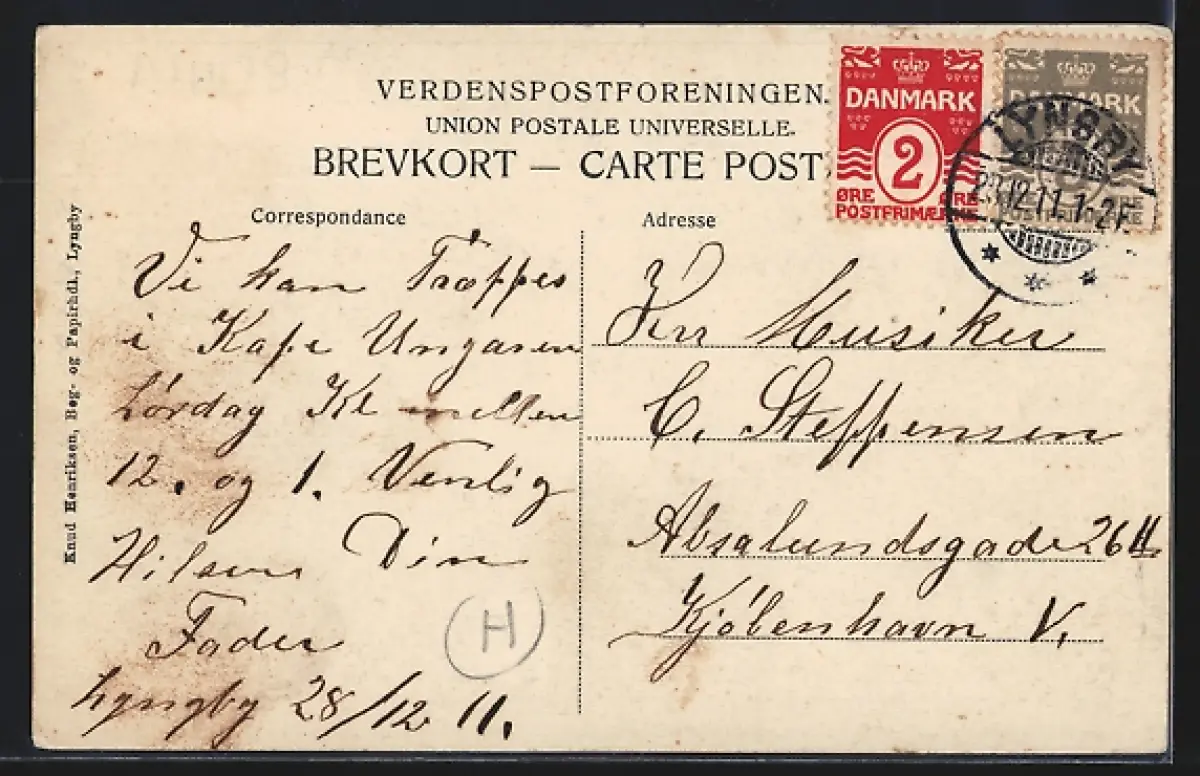 VERDENSPOSTFORENINGEN.
UNION POSTALE UNIVERSELLE.
BREVKORT — CARTE POST
DANMARK
2
ØRE ØRE
POSTFRIMÆRKE
DANMARK
POSTFRIMÆRKE
LYNGBY
12.11.1-2E
Correspondance
Vi kan Træffes
i Kafe Ungaren
Lørdag Kl mellem
12. og 1. Venlig
Hilsen Din
Fader
Lyngby 28/12 11.
H
Adresse
Hrr Musiker
C. Steffensen
Absalundsgade 26 II
Kjøbenhavn V.
Knud Henriksen, Bog- og Papirhdl., Lyngby